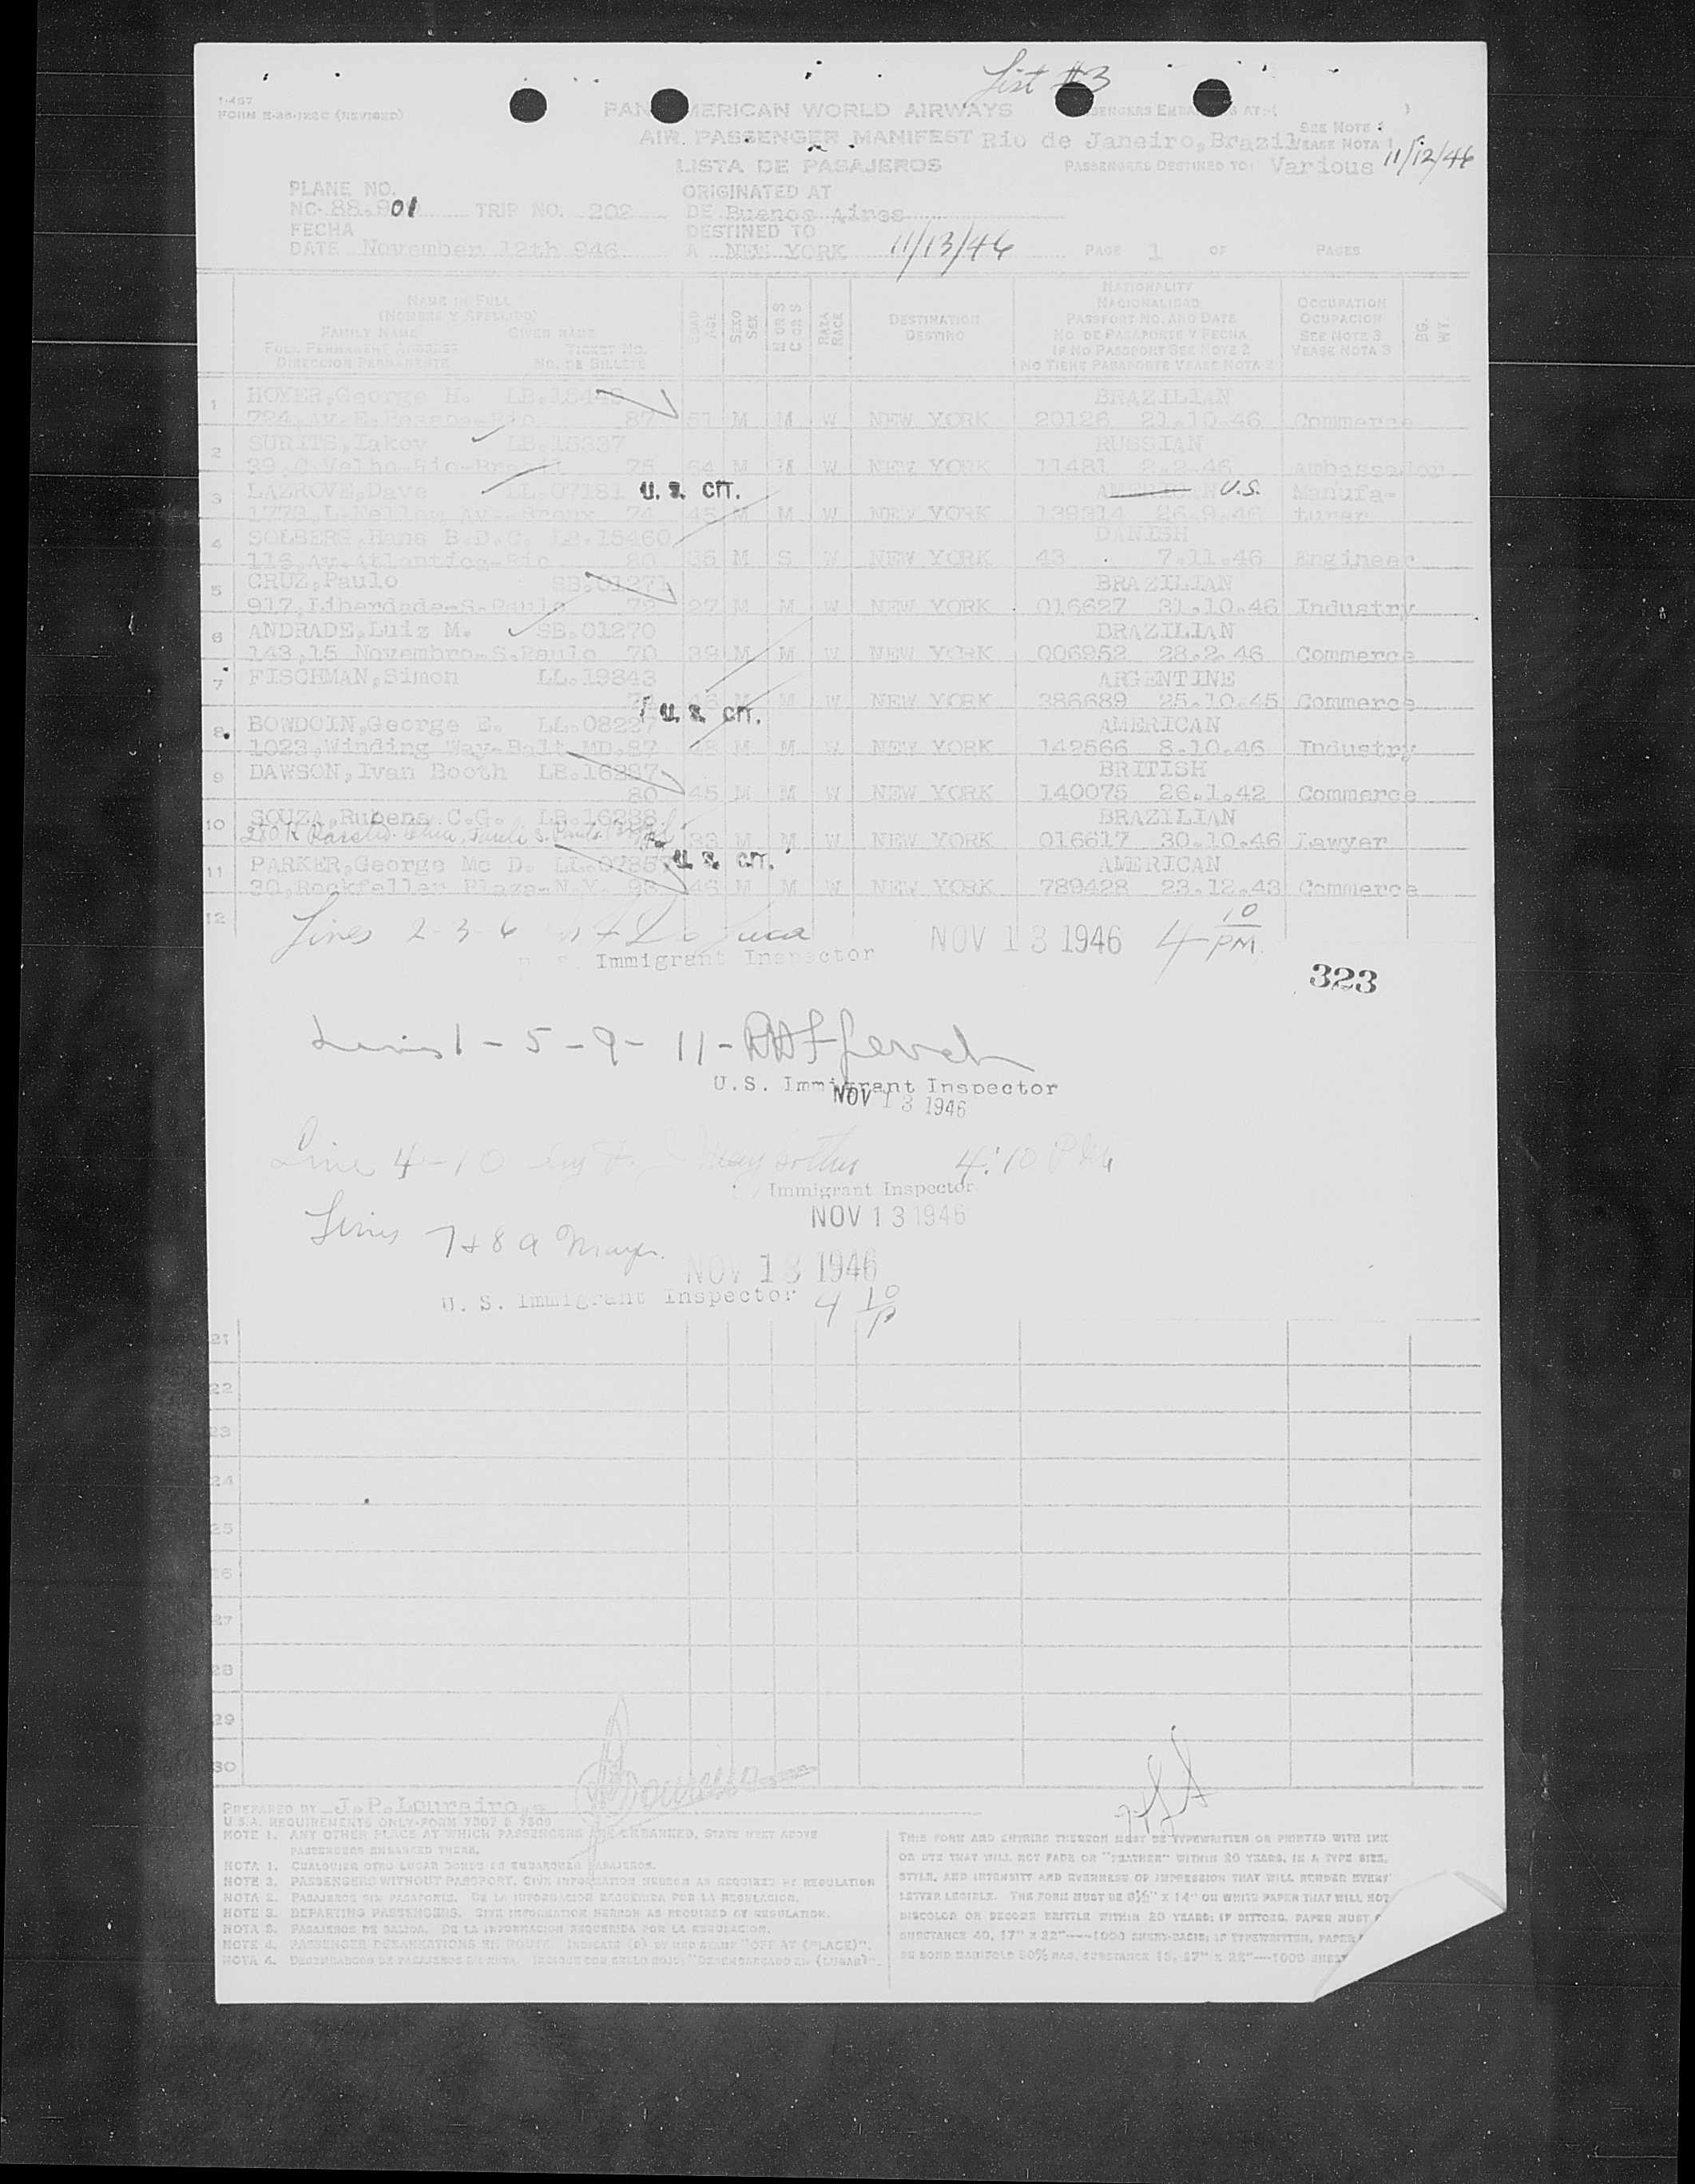 List #3
1-467
FORM
PAN AMERICAN WORLD AIRWAYS
AIR PASSENGER MANIFEST Rio de Janeiro, Brazil
SEE NOTE 1
VEASE NOTA 1
11/12/46
LISTA DE PASAJEROS
PASSENGERS DESTINED TO: Various
PLANE NO.
NC. 88.901 TRIP NO. 202
ORIGINATED AT
DE Buenos Aires
FECHA
DATE November 12th 946
DESTINED TO
A NEW YORK 11/13/46
PAGE 1 OF PAGES
NAME IN FULL
(NOMBRE Y APELLIDO)
FAMILY NAME GIVEN NAME
FULL PERMANENT ADDRESS TICKET NO.
DIRECCION PERMANENTE NO. DE BILLETE
EDAD AGE
SEXO SEX
M OR S C OR S
RAZA RACE
DESTINATION
DESTINO
NATIONALITY
NACIONALIDAD
PASSPORT NO. AND DATE
NO DE PASAPORTE Y FECHA
IF NO PASSPORT SEE NOTE 2
NO TIENE PASAPORTE VEASE NOTA 2
OCCUPATION
OCUPACION
SEE NOTE 3
VEASE NOTA 3
BG. WT.
1 HOYER, George H. BRAZILIAN
724, Av. E. Pessoa-Rio 87 51 M M W NEW YORK 20126 21.10.46 Commerce
2 SURITS, Iakov LB.15337 RUSSIAN
75 64 M M W NEW YORK 11481 2.2.46 Ambassador
3 LAZROVE, Dave LL.07181 U. S. CIT. AMERICAN U.S. Manufa-
74 45 M M W NEW YORK 139314 26.9.46 turer
4 SOLBERG, Hans B.D.C. LB.15460 DANISH
116, Av. Atlantica-Rio 80 36 M S W NEW YORK 43 7.11.46 Engineer
5 CRUZ, Paulo SB.01271 BRAZILIAN
917, Liberdade-S. Paulo 79 27 M M W NEW YORK 016627 31.10.46 Industry
6 ANDRADE, Luiz M. SB.01270 BRAZILIAN
143, 15 Novembro-S. Paulo 70 39 M M W NEW YORK 006952 28.2.46 Commerce
7 FISCHMAN, Simon LL.19343 ARGENTINE
46 M M W NEW YORK 386689 25.10.45 Commerce
U. S. CIT.
8 BOWDOIN, George E. LL.08227 AMERICAN
1023, Winding Way-Balt. MD. 87 48 M M W NEW YORK 142566 8.10.46 Industry
9 DAWSON, Ivan Booth LB.16287 BRITISH
80 45 M M W NEW YORK 140075 26.1.42 Commerce
10 SOUZA, Rubens C.G. LB.16288 BRAZILIAN
33 M M W NEW YORK 016617 30.10.46 Lawyer
U. S. CIT.
11 PARKER, George Mc D. AMERICAN
30, Rockfeller Plaza-N.Y. 98 46 M M W NEW YORK 789428 23.12.43 Commerce
12
Lines 2-3-6 NOV 13 1946 4 10 PM.
U. S. Immigrant Inspector
323
Lines 1-5-9-11-
U.S. Immigrant Inspector
NOV 13 1946
Line 4-10 by 4:10 PM
Immigrant Inspector
NOV 13 1946
Lines 7 + 8
NOV 13 1946
U. S. Immigrant Inspector 4 10 P
21
22
23
24
25
26
27
28
29
30
PREPARED BY J.P. Loureiro
U.S.A. REQUIREMENTS ONLY-FORM 7507 & 7509
NOTE 1. ANY OTHER PLACE AT WHICH PASSENGERS ARE EMBARKED, STATE NEXT ABOVE
PASSENGERS EMBARKED THERE.
NOTA 1. CUALQUIER OTRO LUGAR DONDE SE EMBARQUEN PASAJEROS.
NOTE 2. PASSENGERS WITHOUT PASSPORT. GIVE INFORMATION NEEDED AS REQUIRED BY REGULATION
NOTA 2. PASAJEROS SIN PASAPORTE. DE LA INFORMACION REQUERIDA POR LA REGULACION.
NOTE 3. DEPARTING PASSENGERS. GIVE INFORMATION HEREON AS REQUIRED BY REGULATION.
NOTA 3. PASAJEROS DE SALIDA. DE LA INFORMACION REQUERIDA POR LA REGULACION.
NOTE 4. PASSENGER DEBARKATIONS EN ROUTE. INDICATE (D) BY RED STAMP "OFF AT (PLACE)".
NOTA 4. DESEMBARCOS DE PASAJEROS EN RUTA. INDIQUE CON SELLO ROJO: "DESEMBARCADO EN (LUGAR)".
THIS FORM AND ENTRIES THEREON MUST BE TYPEWRITTEN OR PRINTED WITH INK
OR DYE THAT WILL NOT FADE OR "FEATHER" WITHIN 20 YEARS, IN A TYPE SIZE,
STYLE, AND INTENSITY AND EVENNESS OF IMPRESSION THAT WILL RENDER EVERY
LETTER LEGIBLE. THE FORM MUST BE 8½" X 14" ON WHITE PAPER THAT WILL NOT
DISCOLOR OR BECOME BRITTLE WITHIN 20 YEARS; IF DITTOED, PAPER MUST
SUBSTANCE 40, 17" X 22"—1000 SHEET-BASIS; IF TYPEWRITTEN, PAPER
BE BOND MANIFOLD 50% RAG, SUBSTANCE 16, 17" X 22"—1000